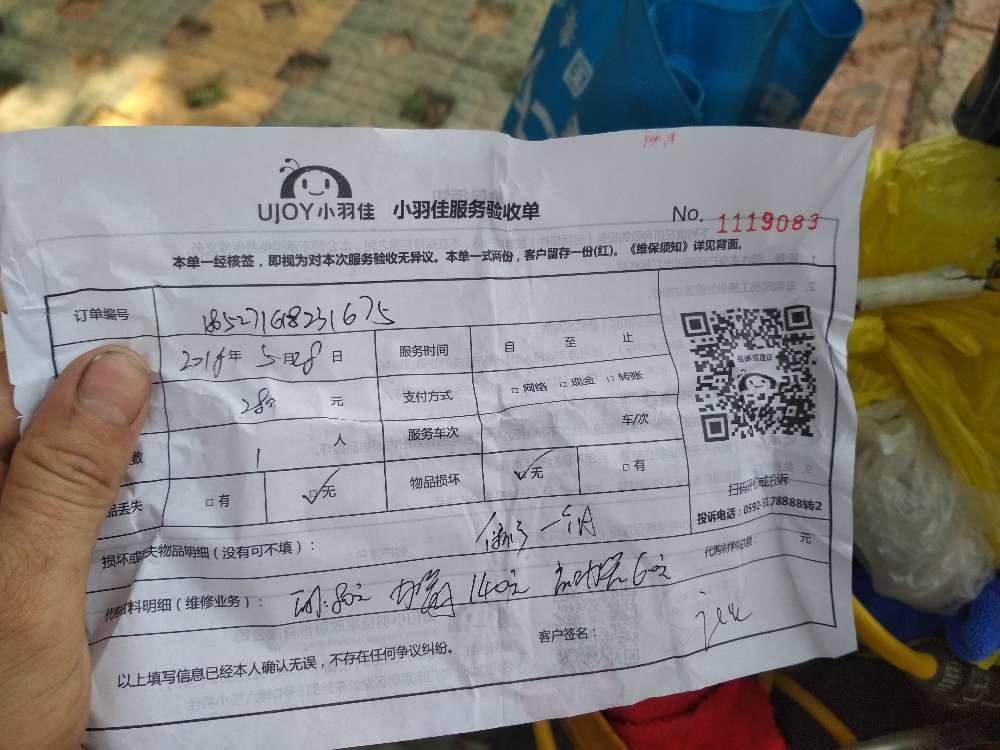 UJOY小羽佳 小羽佳服务验收单
No. 1119083
本单一经核签，即视为对本次服务验收无异议。本单一式两份，客户留存一份(红)。《维保须知》详见背面。
订单编号 1865271618231675
2018年 5月28日 服务时间 自 至 止
280 元 支付方式 □网络 □现金 □转账
数 1 人 服务车次 车/次
品丢失 □有 □无 物品损坏 □无 □有
投诉或建议
扫码评价或投诉
投诉电话：0592-3178888转2
损坏或丢失物品明细（没有可不填）： 保修一个月
代购材料明细（维修业务）： 140元 60元 代购材料总额： 元
以上填写信息已经本人确认无误，不存在任何争议纠纷。 客户签名：